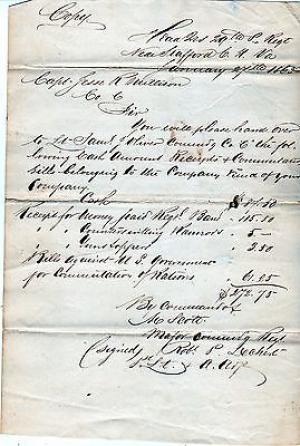 Copy
Head Qrs 29th P. Regt
Near Stafford C. H. Va
January 27th 1863
Capt. Jesse R.
Co C
Sir
You will please hand over
to Lt. Saml Oliver Commdg Co C the fol-
lowing Cash Amount Receipts & Commutation
bills belonging to the Company Fund of your
Company
Cash $ 84.50
Receipt for money paid Regtl Band " 115.50
" " Countersinking " 5 —
" " 2.50
Bills against U S Government
for Commutation of Rations " 61.25
$ 272.75
By Command of
M Scott
Major Commdg Regt
(Signed) Robt P. Dechert
1st Lt. & A. Adjt